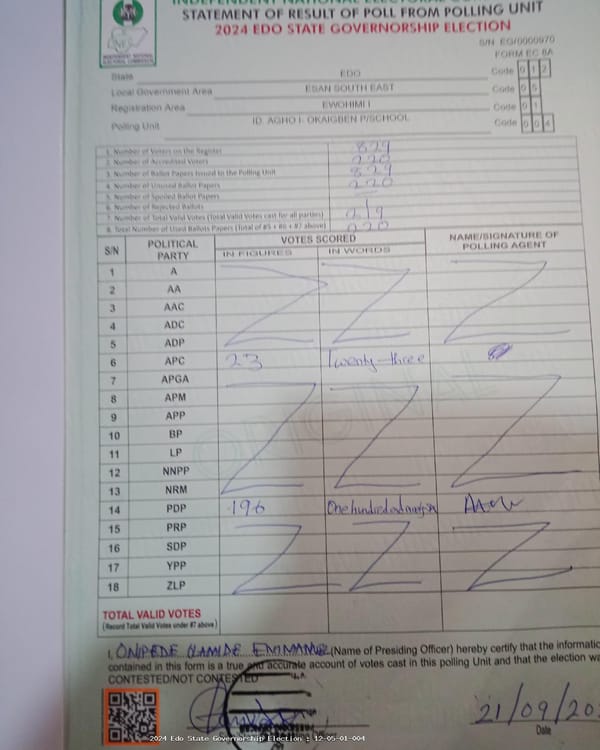 STATEMENT OF RESULT OF POLL FROM POLLING UNIT
2024 EDO STATE GOVERNORSHIP ELECTION
S/N EG/0000970
FORM EC 8A
State EDO Code 0 1 2
Local Government Area ESAN SOUTH EAST Code 0 5
Registration Area EWOHIMI I Code 0 1
Polling Unit ID. AGHO I- OKAIGBEN P/SCHOOL Code 0 0 4
1. Number of Voters on the Register 829
2. Number of Accredited Voters 220
3. Number of Ballot Papers Issued to the Polling Unit 829
4. Number of Unused Ballot Papers
5. Number of Spoiled Ballot Papers
6. Number of Rejected Ballots 1
7. Number of Total Valid Votes (Total Valid Votes cast for all parties) 219
8. Total Number of Used Ballots Papers (Total of #5 + #6 + #7 above) 220
S/N POLITICAL PARTY VOTES SCORED NAME/SIGNATURE OF POLLING AGENT
IN FIGURES IN WORDS
1 A
2 AA
3 AAC
4 ADC
5 ADP
6 APC 23 Twenty-three
7 APGA
8 APM
9 APP
10 BP
11 LP
12 NNPP
13 NRM
14 PDP 196
15 PRP
16 SDP
17 YPP
18 ZLP
TOTAL VALID VOTES
(Record Total Valid Votes under #7 above)
I, (Name of Presiding Officer) hereby certify that the
contained in this form is a true and accurate account of votes cast in this polling Unit and that the election
CONTESTED/NOT CONTESTED
21/09/
Date
2024 Edo State Governorship Election : 12-05-01-004